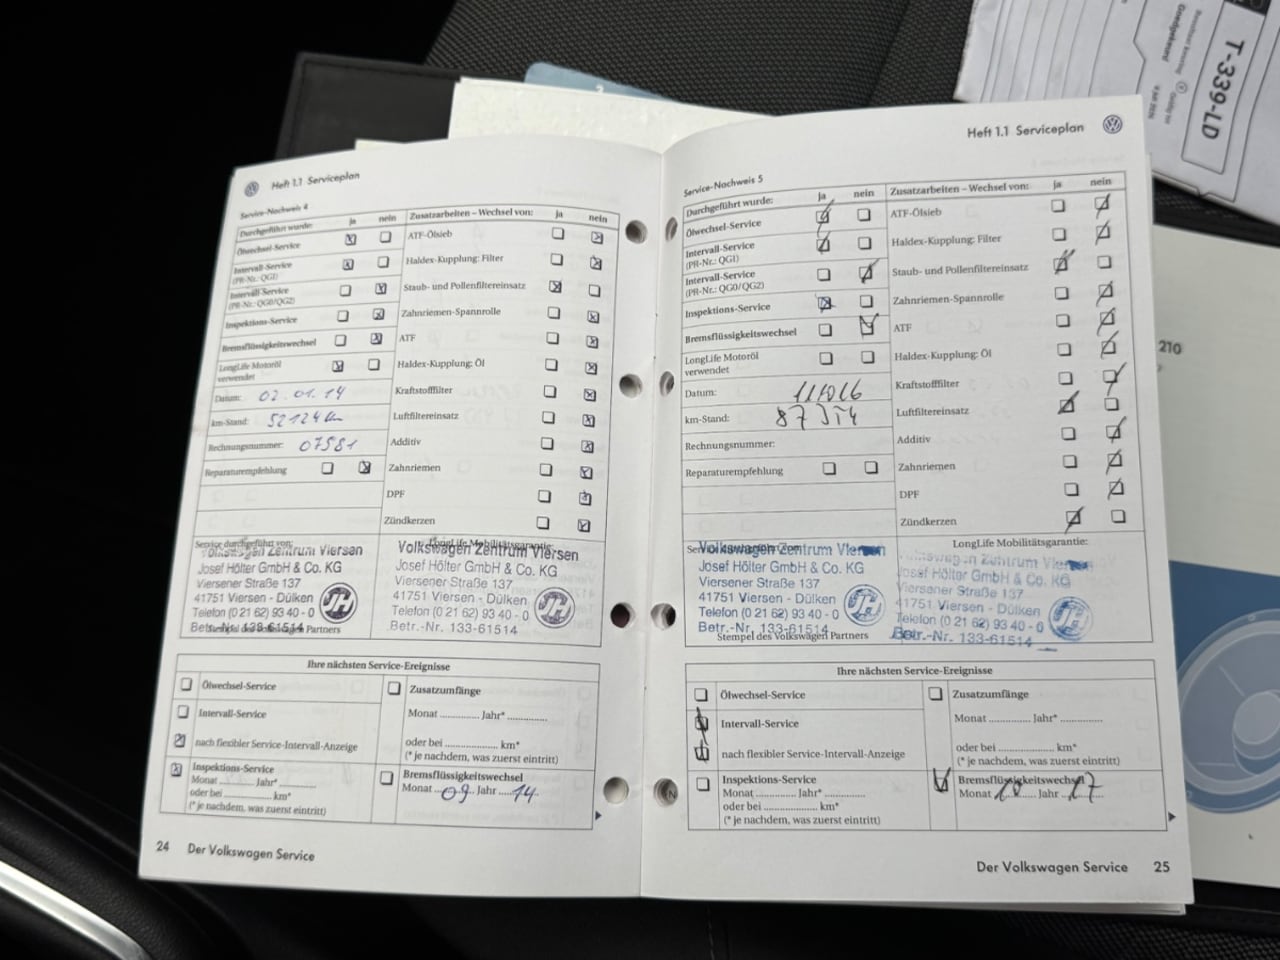 Heft 1.1 Serviceplan
Service-Nachweis 4
Durchgeführt wurde: ja nein
Ölwechsel-Service
Intervall-Service
(PR-Nr.: QG1)
Intervall-Service
(PR-Nr.: QG0/QG2)
Inspektions-Service
Bremsflüssigkeitswechsel
LongLife Motoröl
verwendet
Datum: 02.01.14
km-Stand: 52124 km
Rechnungsnummer: 07581
Reparaturempfehlung
Zusatzarbeiten – Wechsel von: ja nein
ATF-Ölsieb
Haldex-Kupplung: Filter
Staub- und Pollenfiltereinsatz
Zahnriemen-Spannrolle
ATF
Haldex-Kupplung: Öl
Kraftstofffilter
Luftfiltereinsatz
Additiv
Zahnriemen
DPF
Zündkerzen
Service durchgeführt von:
Volkswagen Zentrum Viersen
Josef Hölter GmbH & Co. KG
Viersener Straße 137
41751 Viersen - Dülken
Telefon (0 21 62) 93 40 - 0
Betr.-Nr. 133-61514
Stempel des Volkswagen Partners
LongLife Mobilitätsgarantie:
Volkswagen Zentrum Viersen
Josef Hölter GmbH & Co. KG
Viersener Straße 137
41751 Viersen - Dülken
Telefon (0 21 62) 93 40 - 0
Betr.-Nr. 133-61514
JH
Ihre nächsten Service-Ereignisse
Ölwechsel-Service
Intervall-Service
nach flexibler Service-Intervall-Anzeige
Inspektions-Service
Monat ............ Jahr* ............
oder bei .................... km*
(* je nachdem, was zuerst eintritt)
Zusatzumfänge
Monat ............ Jahr* ............
oder bei .................... km*
(* je nachdem, was zuerst eintritt)
Bremsflüssigkeitswechsel
Monat 09 Jahr 14
24 Der Volkswagen Service
Heft 1.1 Serviceplan
Service-Nachweis 5
Durchgeführt wurde: ja nein
Ölwechsel-Service
Intervall-Service
(PR-Nr.: QG1)
Intervall-Service
(PR-Nr.: QG0/QG2)
Inspektions-Service
Bremsflüssigkeitswechsel
LongLife Motoröl
verwendet
Datum:
km-Stand:
Rechnungsnummer:
Reparaturempfehlung
Zusatzarbeiten – Wechsel von: ja nein
ATF-Ölsieb
Haldex-Kupplung: Filter
Staub- und Pollenfiltereinsatz
Zahnriemen-Spannrolle
ATF
Haldex-Kupplung: Öl
Kraftstofffilter
Luftfiltereinsatz
Additiv
Zahnriemen
DPF
Zündkerzen
Volkswagen Zentrum Viersen
Josef Hölter GmbH & Co. KG
Viersener Straße 137
41751 Viersen - Dülken
Telefon (0 21 62) 93 40 - 0
Betr.-Nr. 133-61514
Stempel des Volkswagen Partners
LongLife Mobilitätsgarantie:
Volkswagen Zentrum Viersen
Josef Hölter GmbH & Co. KG
Viersener Straße 137
41751 Viersen - Dülken
Telefon (0 21 62) 93 40 - 0
Betr.-Nr. 133-61514
Ihre nächsten Service-Ereignisse
Ölwechsel-Service
Intervall-Service
nach flexibler Service-Intervall-Anzeige
Inspektions-Service
Monat ............ Jahr* ............
oder bei ............ km*
(* je nachdem, was zuerst eintritt)
Zusatzumfänge
Monat ............ Jahr* ............
oder bei .................... km*
(* je nachdem, was zuerst eintritt)
Bremsflüssigkeitswechsel
Monat 10 Jahr 17
Der Volkswagen Service 25
T-339-LD
Goedgekeurd
210